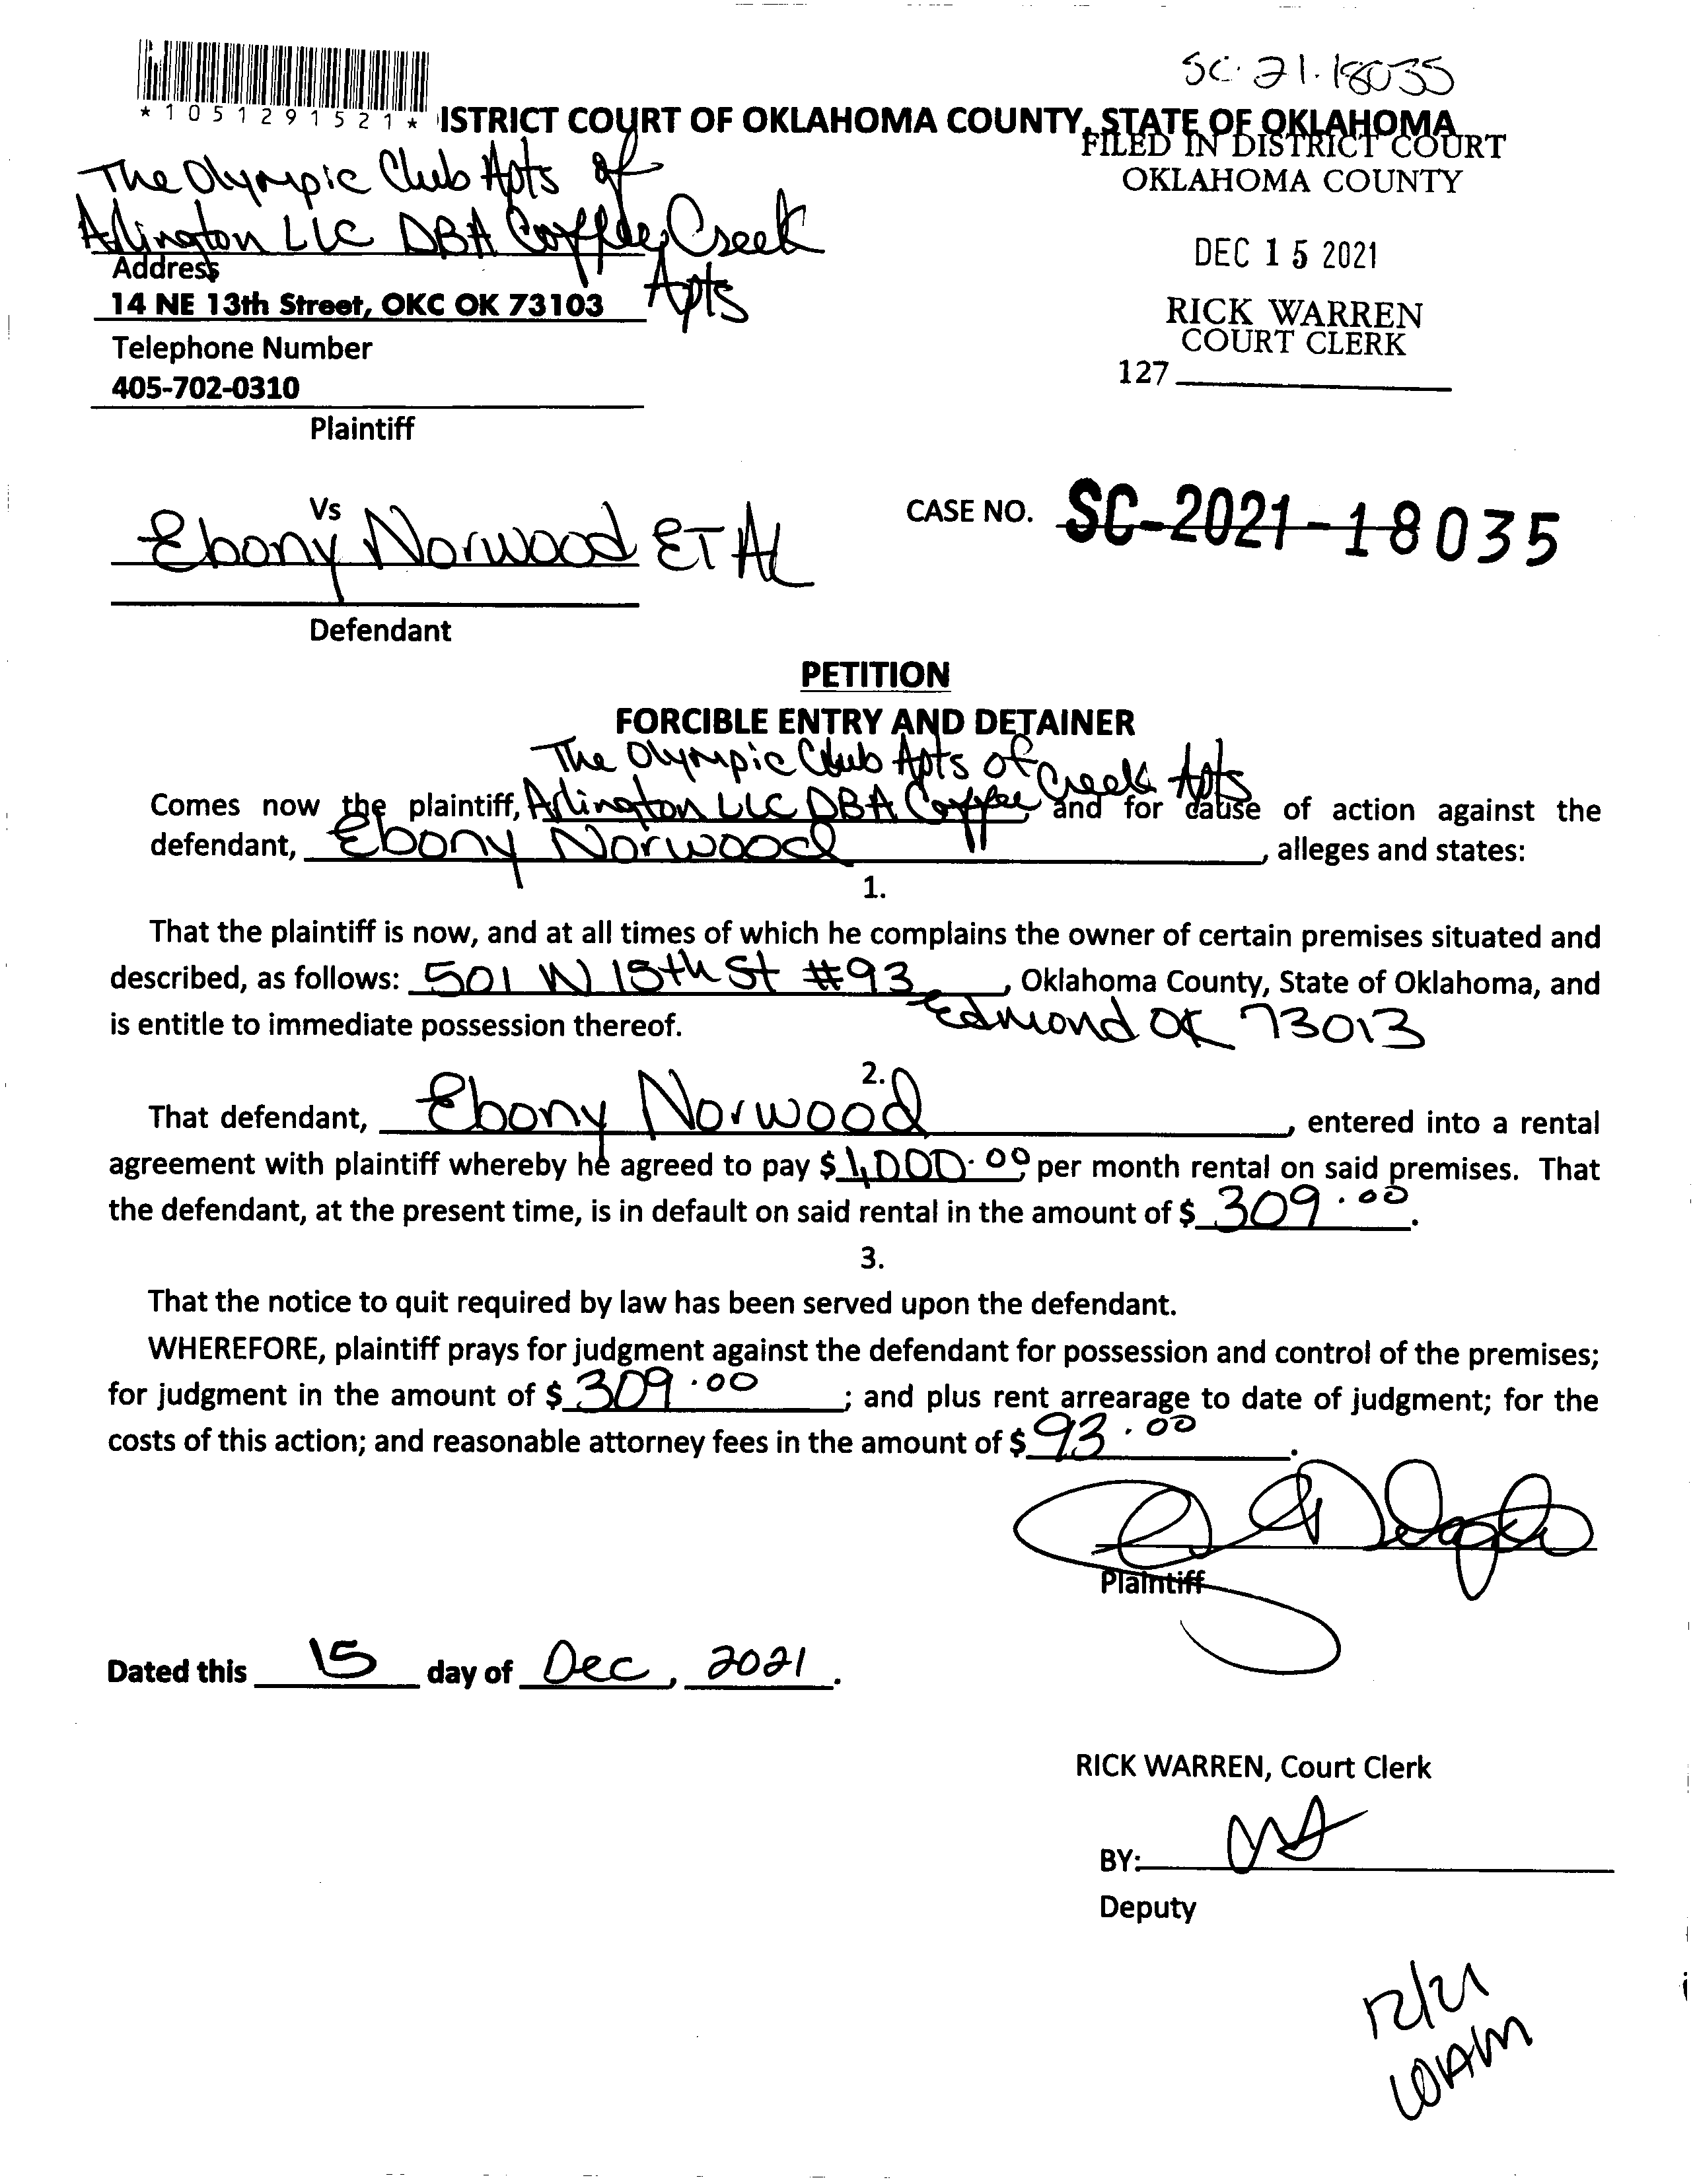 SC-21-18035
*1051291521* ISTRICT COURT OF OKLAHOMA COUNTY, STATE OF OKLAHOMA
FILED IN DISTRICT COURT
OKLAHOMA COUNTY
The Olympic Club Apts of
Arlington LLC DBA Coffee Creek
Apts
DEC 15 2021
Address
14 NE 13th Street, OKC OK 73103
RICK WARREN
COURT CLERK
Telephone Number
127
405-702-0310
Plaintiff
Vs
CASE NO. SC-2021-18035
Ebony Norwood ET AL
Defendant
PETITION
FORCIBLE ENTRY AND DETAINER
The Olympic Club Apts of
Comes now the plaintiff, Arlington LLC DBA Coffee Creek Apts and for cause of action against the
defendant, Ebony Norwood, alleges and states:
1.
That the plaintiff is now, and at all times of which he complains the owner of certain premises situated and
described, as follows: 501 W 15th St #93, Oklahoma County, State of Oklahoma, and
Edmond OK 73013
is entitle to immediate possession thereof.
2.
That defendant, Ebony Norwood, entered into a rental
agreement with plaintiff whereby he agreed to pay $1,000.00 per month rental on said premises. That
the defendant, at the present time, is in default on said rental in the amount of $ 309.00.
3.
That the notice to quit required by law has been served upon the defendant.
WHEREFORE, plaintiff prays for judgment against the defendant for possession and control of the premises;
for judgment in the amount of $ 309.00; and plus rent arrearage to date of judgment; for the
costs of this action; and reasonable attorney fees in the amount of $ 93.00.
Plaintiff
Dated this 15 day of Dec, 2021.
RICK WARREN, Court Clerk
BY:
Deputy
12/21